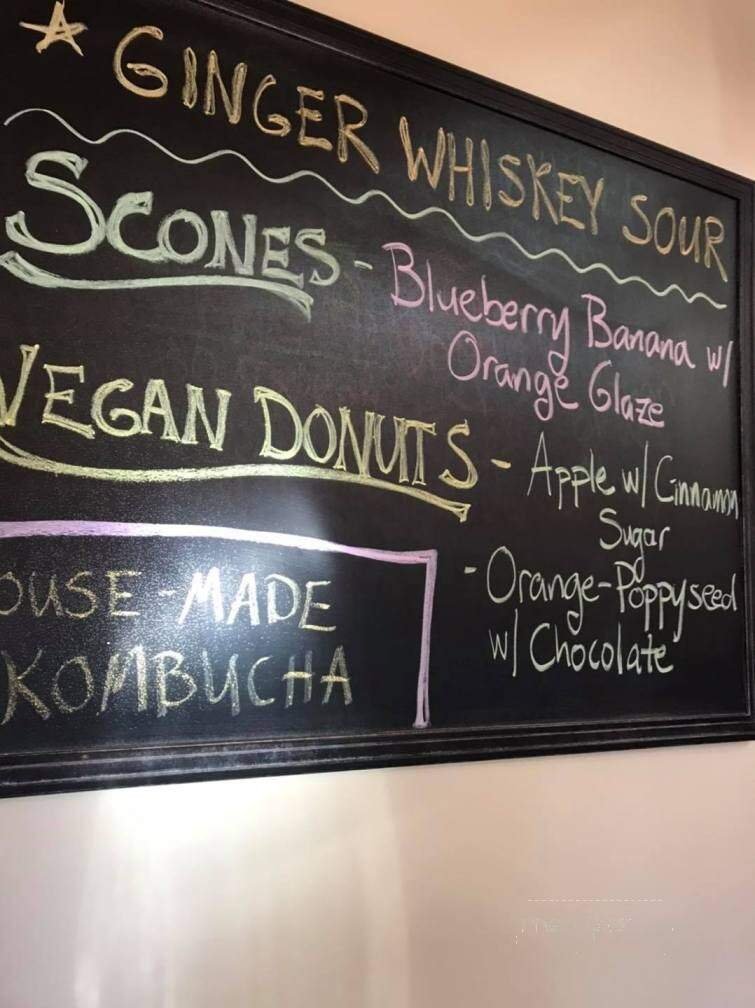 GINGER WHISKEY SOUR
SCONES - Blueberry Banana w/
Orange Glaze
VEGAN DONUTS - Apple w/ Cinnamon
Sugar
- Orange-Poppyseed
w/ Chocolate
OUSE-MADE
KOMBUCHA